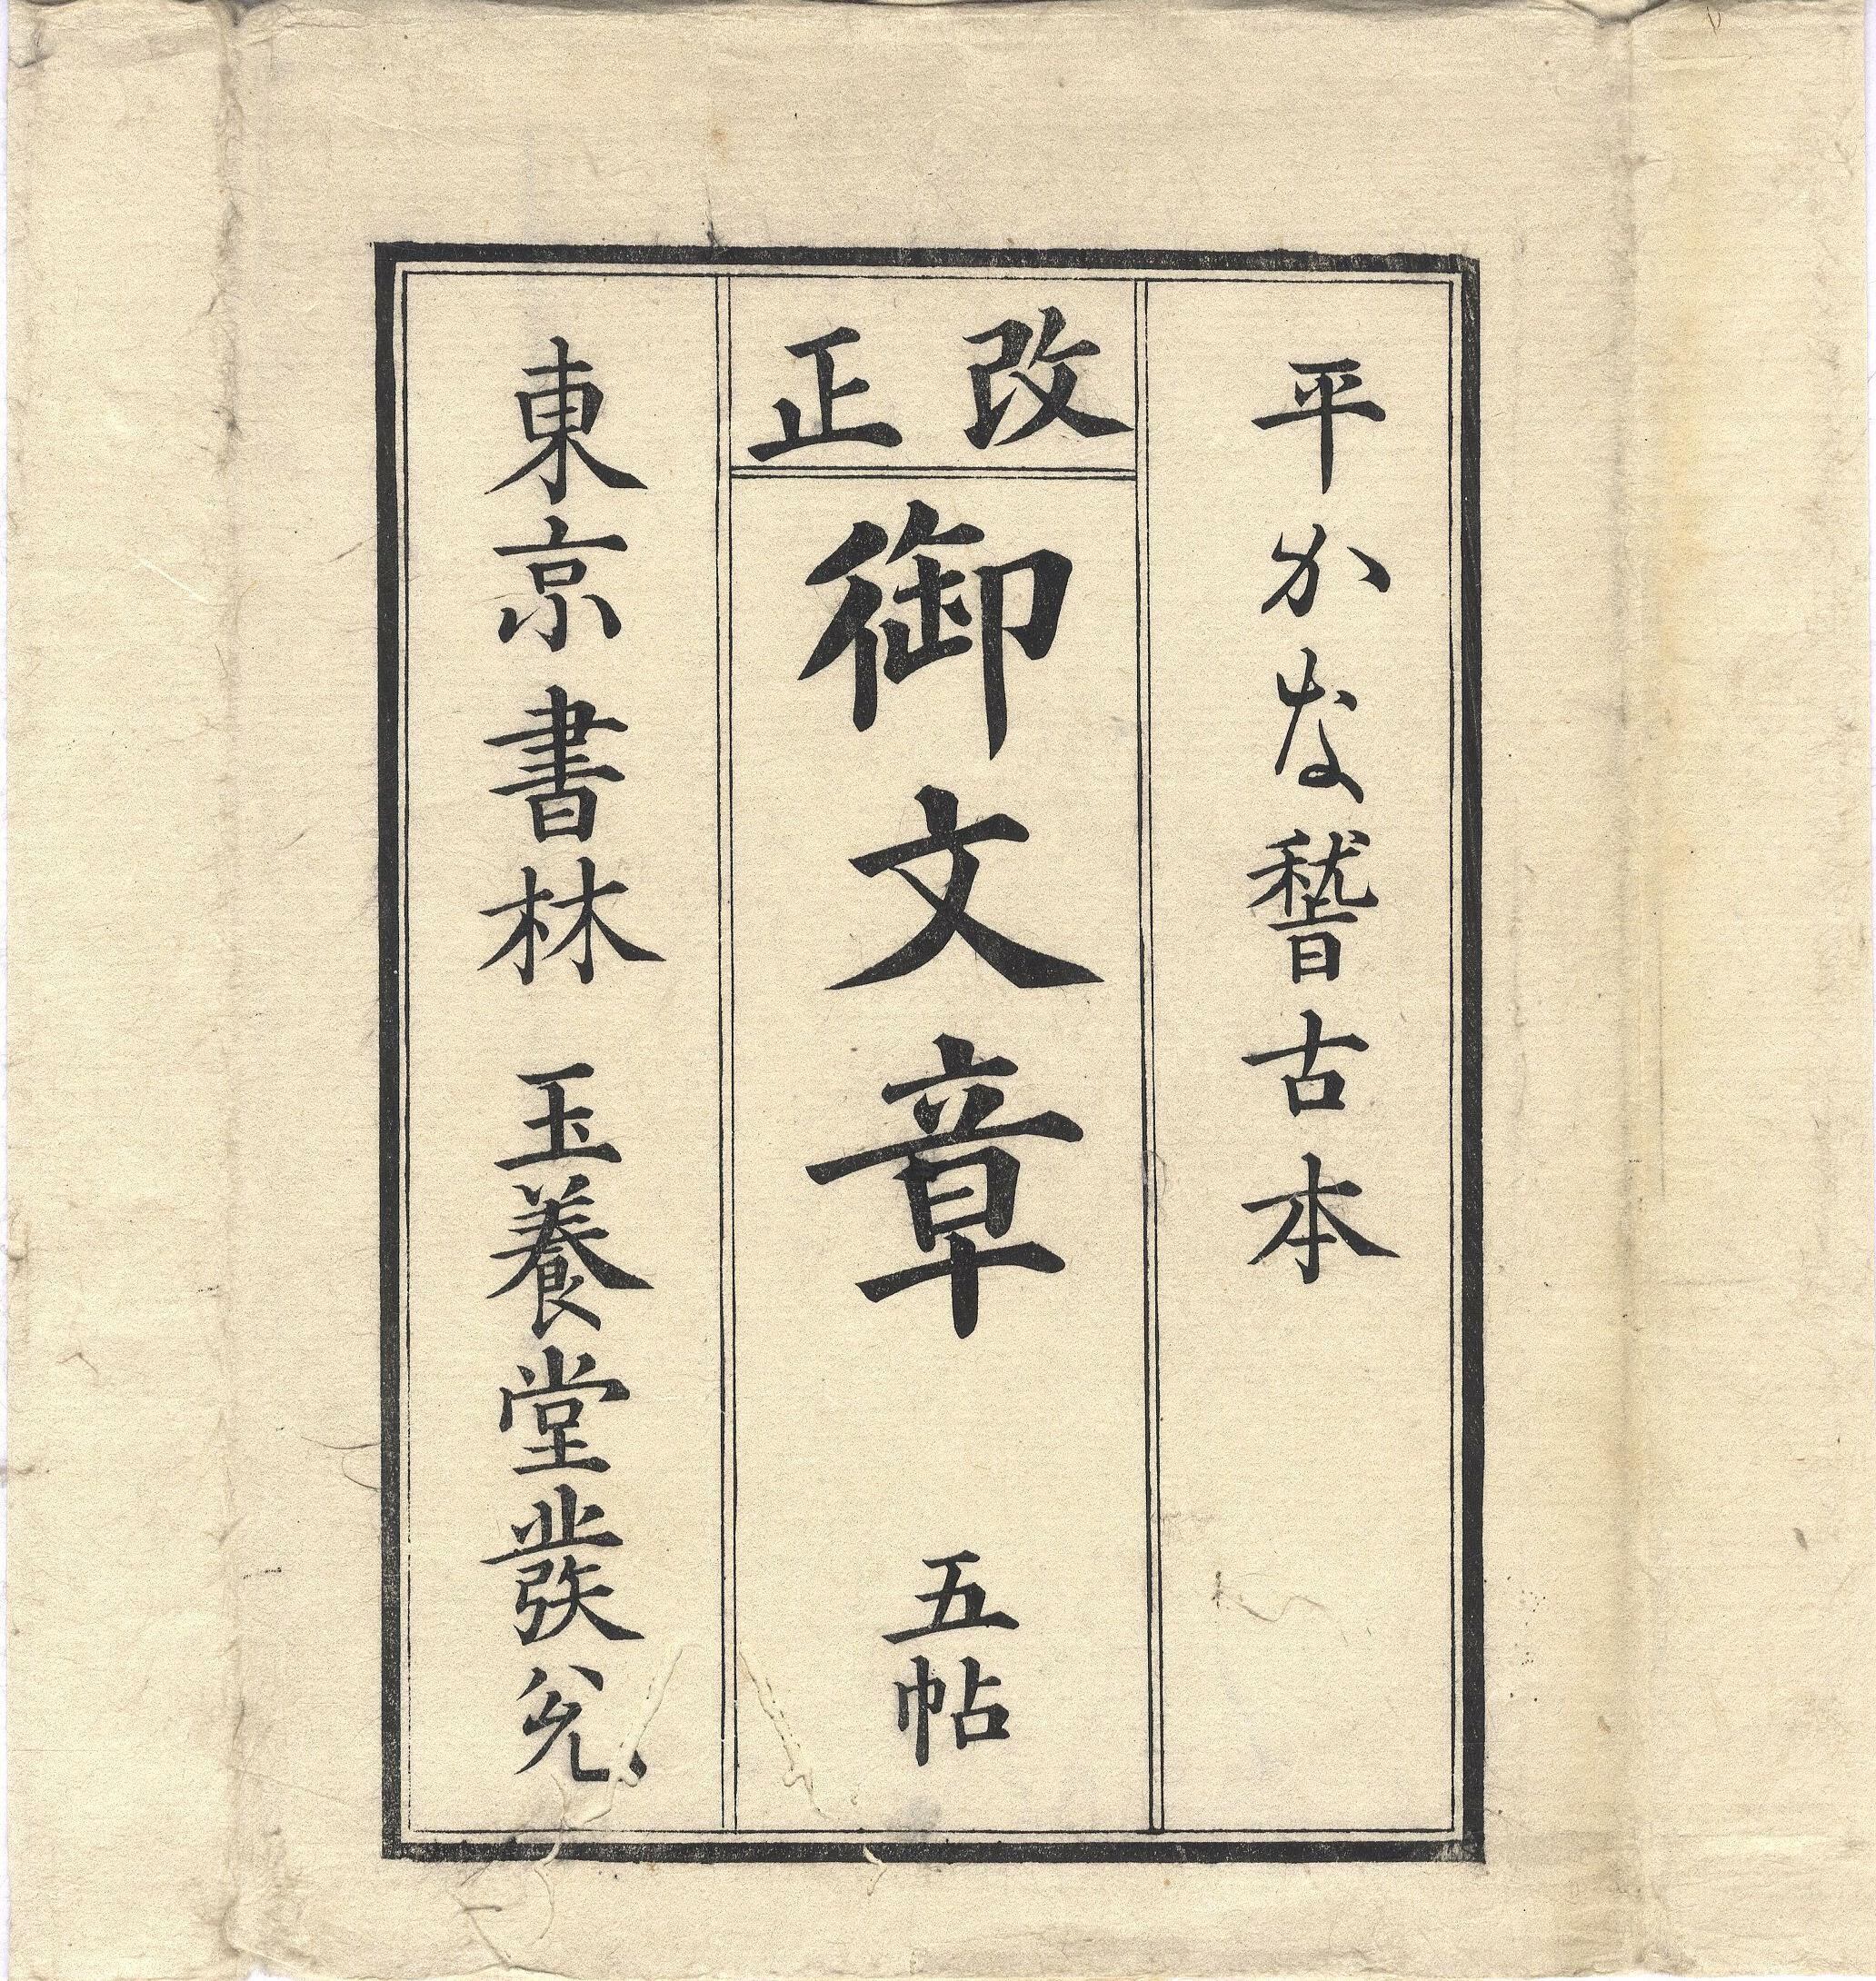 平かな稽古本
改正
御文章　五帖
東京書林　玉養堂發兌